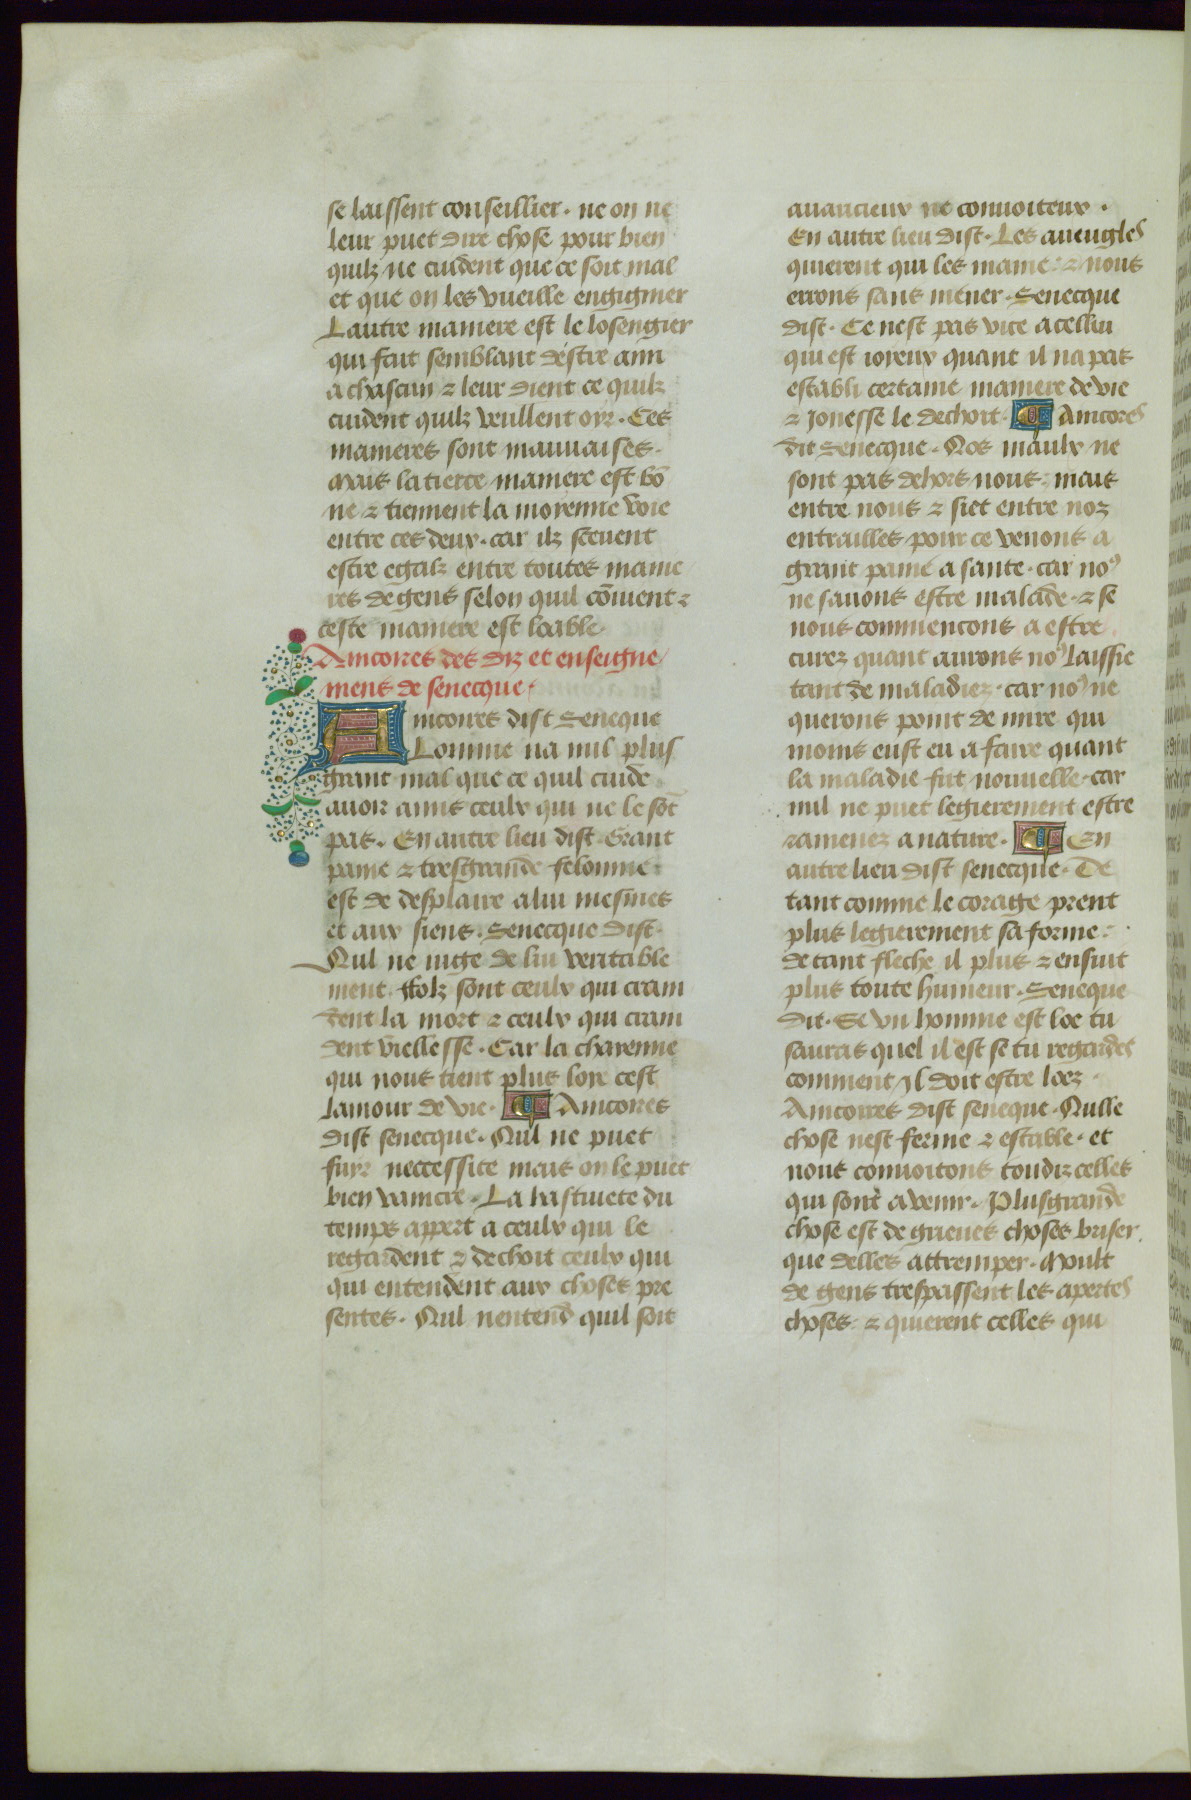 se laissent conseillier. ne on ne
leur puet dire chose pour bien
quilz ne cuident que ce soit mal
et que on les vueille engignier
Lautre maniere est le losengier
qui fait semblant destre ami
a chascun ⁊ leur dient ce quilz
cuident quilz veullent oyr. Ces
manieres sont mauuaises.
Mais la tierce maniere est bõ
ne ⁊ tiennent la moienne voie
entre ces deux. car ilz sceuent
estre egalz entre toutes manie
res de gens selon quil cõuient ⁊
ceste maniere est loable
Aincores des diz et enseigne
mens de senecque.
Aincores dist Seneque
Lomme na nul plus
grant mal que ce quil cuide
auoir amis ceulx qui ne le sõt
pas. En autre lieu dist. Grant
paine ⁊ tresgrande felonnie
est de desplaire a lui mesmes
et aux siens. Senecque dist.
Nul ne iuge de lui veritable
ment. ffolz sont ceulx qui crain
dent la mort ⁊ ceulx qui crain
dent viellesse. Car la chayenne
qui nous tient plus loye cest
lamour de vie. Aincores
dist senecque. Nul ne puet
fuyr neccessite mais on le puet
bien vaincre. La hastiuete du
temps appert a ceulx qui le
regardent ⁊ dechoit ceulx qui
qui entendent aux choses pre
sentes. Nul nentend quil soit
auaricieux ne conuoiteux.
En autre lieu dist. Les aueugles
quierent qui les maine ⁊ nous
errons sans mener. Senecque
dist. Ce nest pas vice a cellui
qui est ioyeux quant il na pas
establi certaine maniere de vie
⁊ Jonesse le dechoit. Aincores
dit Senecque. Nos maulx ne
sont pas dehors nous. mais
entre nous ⁊ siet entre noz
entrailles pour ce venons a
grant paine a sante. car noꝰ
ne sauons estre malade. ⁊ se
nous commencons a estre
curez quant aurons noꝰ laissie
tant de maladiez. car noꝰ ne
querons point de mire qui
moins eust eu a faire quant
la maladie fut nouuelle. car
nul ne puet legierement estre
ramenez a nature. En
autre lieu dist senecque. De
tant comme le corage prent
plus legierement sa forme.
de tant fleche il plus ⁊ ensuit
plus toute humeur. Seneque
dit. Se vn homme est loe tu
sauras quel il est se tu regardes
comment Jl doit estre loez
Aincores dist seneque. Nulle
chose nest ferme ⁊ estable. et
nous conuoitons toudiz celles
qui sont a venir. Plusgrande
chose est de grieues choses briser
que delles attremper. Moult
de gens trespassent les apertes
choses. ⁊ quierent celles qui